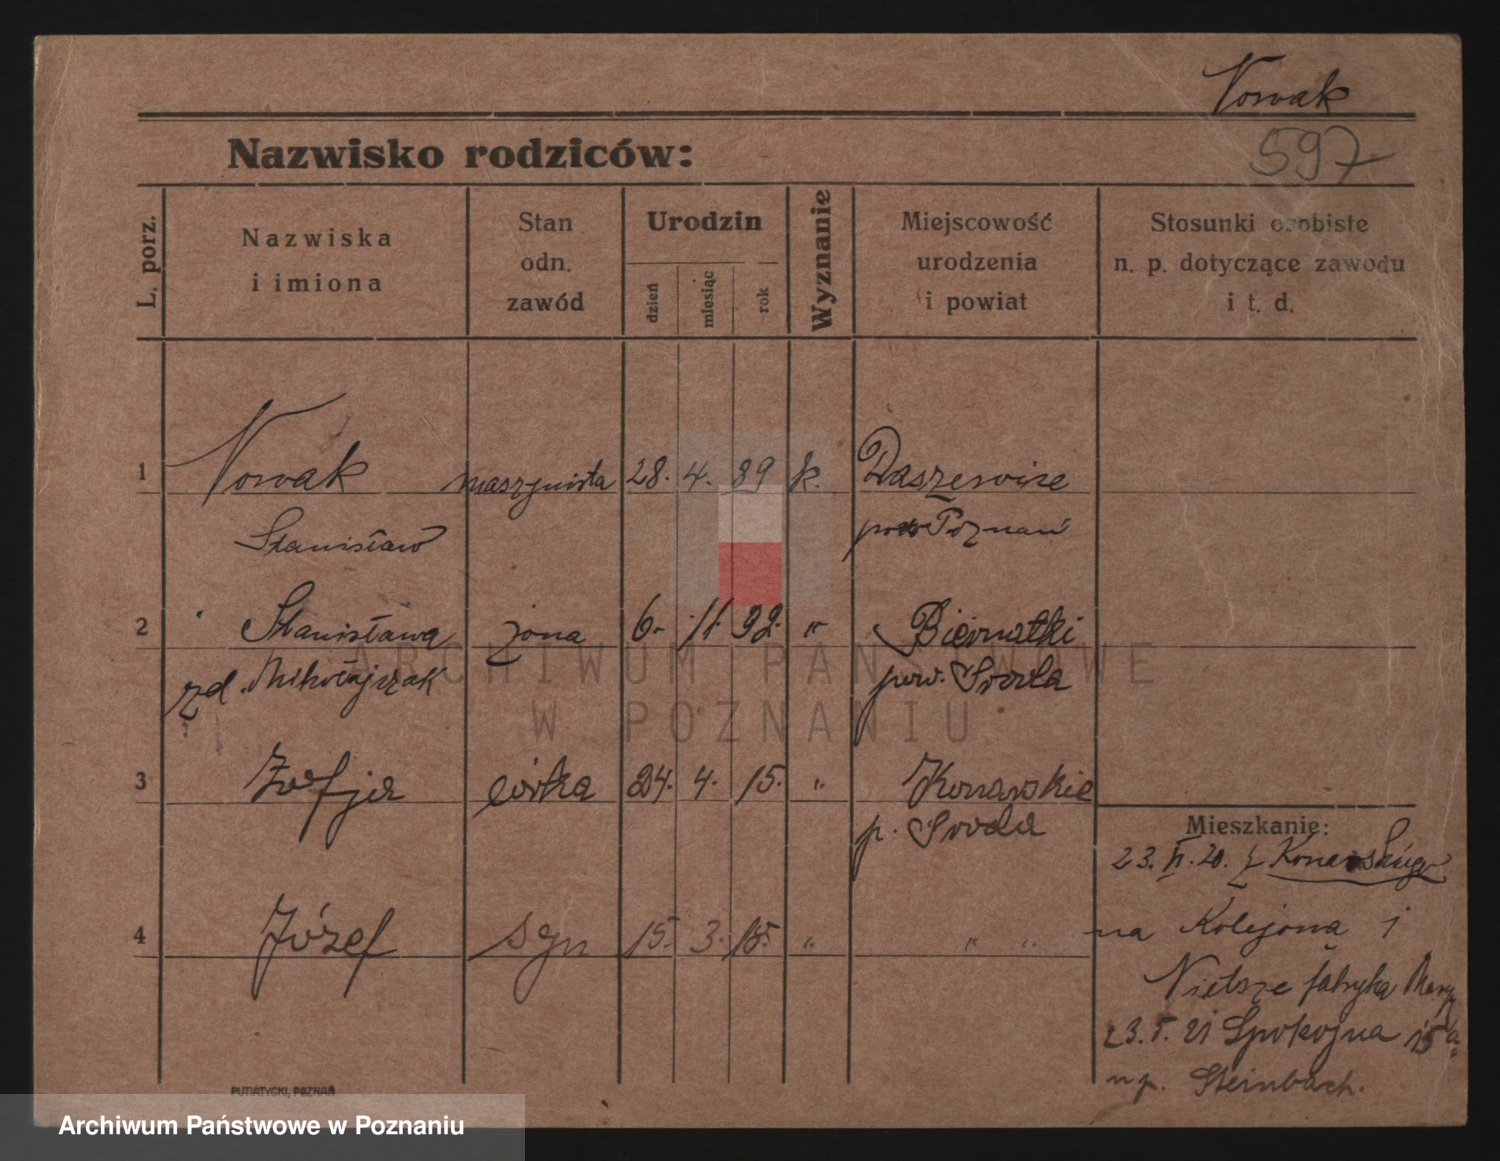 Nowak
597
Nazwisko rodziców:
L. porz.
Nazwiska
i imiona
Stan
odn.
zawód
Urodzin
dzień
miesiąc
rok
Wyznanie
Miejscowość
urodzenia
i powiat
Stosunki osobiste
n. p. dotyczące zawodu
i t. d.
1 Nowak maszynista 28. 4. 89 k. Daszewice
Stanisław pow Poznań
2 Stanisława żona 6. 11. 92. " Biernatki
zd. Mikołajczak pow. Środa
3 Zofja córka 24. 4. 15. " Konarskie
p. Środa
Mieszkanie:
23. VI. 20. z Konarskiego
4 Józef syn 15. 3. 18. " " "
na Kolejowa
fabryka
23. V. 21 Spokojna 15a
np. Steinbach.
PUTIATYCKI, POZNAŃ
ARCHIWUM PAŃSTWOWE
W POZNANIU
Archiwum Państwowe w Poznaniu